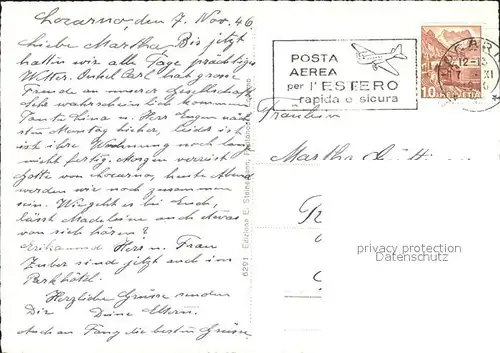 Locarno, den 7. Nov. 46
Liebe Martha, Bis jetzt
hatten wir alle Tage prächtiges
Wetter. Onkel Carl hat grosse
Freude an unserer Gesellschaft.
Sehr wahrscheinlich kommen
Tante Lina u. Herr Eugen näch-
sten Montag hieher, leider ist
ihre Wohnung noch lan
nicht fertig. Morgen verreist
Gotte von Locarno, heute Abend
werden wir noch zusammen
sein. Wie geht es bei Euch,
lässt Madeleine auch etwas
von sich hören?
Herr u. Frau
Zuber sind jetzt auch im
Parkhôtel.
Herzliche Grüsse senden
Dir Deine Eltern.
Auch an Fany die besten Grüsse
6291 Edizione E. Steinemann, Locarno
POSTA
AEREA
per l'ESTERO
rapida e sicura
LOCARNO
12-13
7. XI
10
HELVETIA
Fräulein
Martha
protected by copyright
Datenschutz